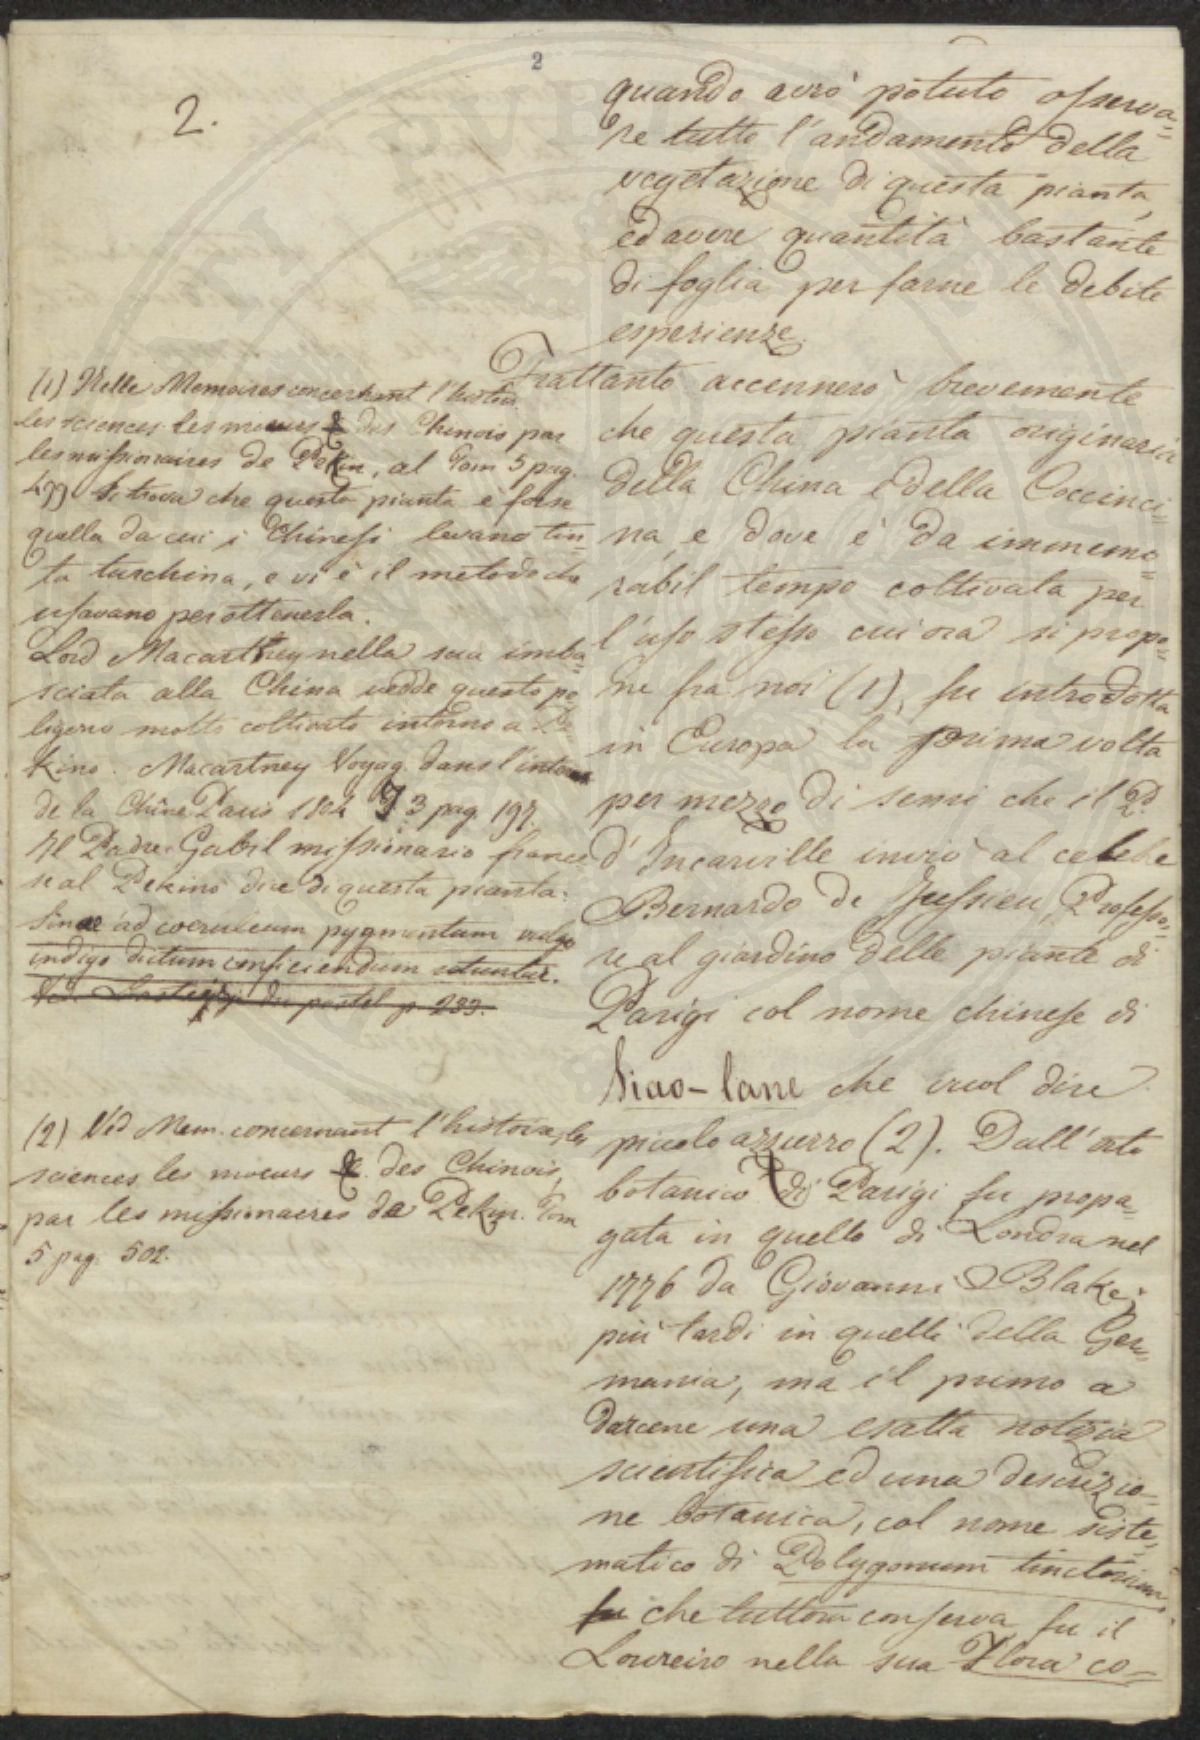 2
2.
quando avrò potuto osserva=
re tutto l'andamento della
vegetazione di questa pianta,
ed avere quantità bastante
di foglia per farne le debite
esperienze.
Frattanto accennerò brevemente
che questa pianta originaria
della China e della Coccinci=
na, e dove è da immemo=
rabil tempo coltivata per
l'uso stesso cui ora si propo=
ne fra noi (1), fu introdotta
in Europa la prima volta
per mezzo di semi che il Pd.
d'Incarville inviò al celebe
Bernardo de Jussieu, Professo=
re al giardino delle piante di
Parigi col nome chinese di
Siao-lane che vuol dire
piccolo azzurro (2). Dall'orto
botanico di Parigi fu propa=
gata in quello di Londra nel
1776 da Giovanni Blake;
più tardi in quelli della Ger=
mania, ma il primo a
darcene una esatta notizia
scientifica ed una descrizio=
ne botanica, col nome siste=
matico di Polygonum tinctorium,
fu che tuttora conserva fu il
Loureiro nella sua Flora co=
(1) Nelle Memoires concernant l'histoire
les sciences les moeurs & des Chinois par
les missionaires de Pekin, al Tom 5 pag.
499 si trova che questa pianta è forse
quella da cui i Chinesi levano tin=
ta turchina, e vi è il metodo che
usavano per ottenerla.
Lord Macarthey nella sua imba=
sciata alla China vedde questo po
ligono molto coltivato intorno a Pe
kino. Macartney Voyag. dans l'interieur
de la Chine Paris 1804 T 3 pag. 197.
Il Padre Gabil missionario france
se al Pekino dice di questa pianta.
Sinae ad coeruleum pygmentum vulgo
indigo dictum conficiendum utuntur.
Ved. du pastel p. 233.
(2) Ved Mem. concernant l'histoire, les
sciences les moeurs &. des Chinois,
par les missionaeres de Pekin. Tom
5 pag. 502.